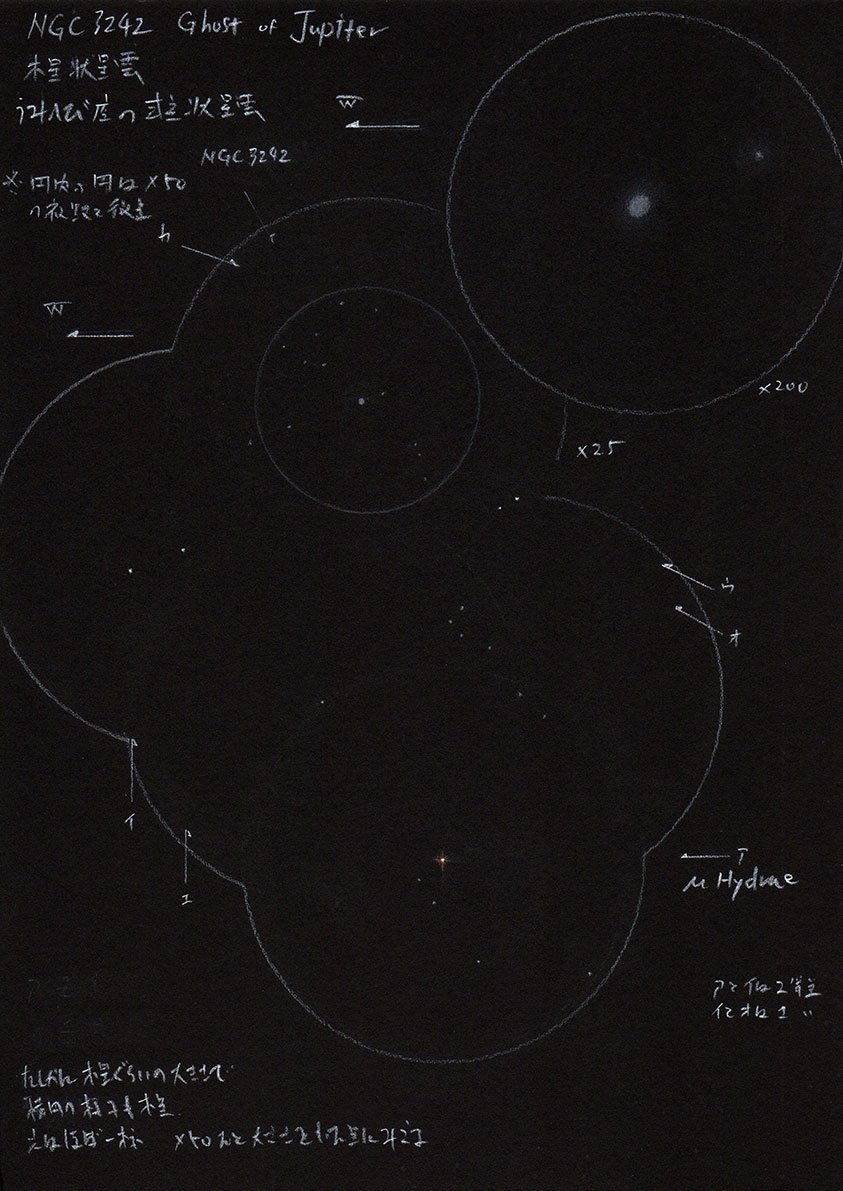 NGC 3242 Ghost of Jupiter
木星状星雲
うみへび座の惑星状星雲
W
NGC 3242
※円内の円は×50
の視野と微星
カ
W
×200
×25
ウ
オ
イ
エ
ア
μ Hydrae
アとイは2等星
たしかに木星ぐらいの大きさで
楕円の様子も木星
光はほぼ一様 ×50